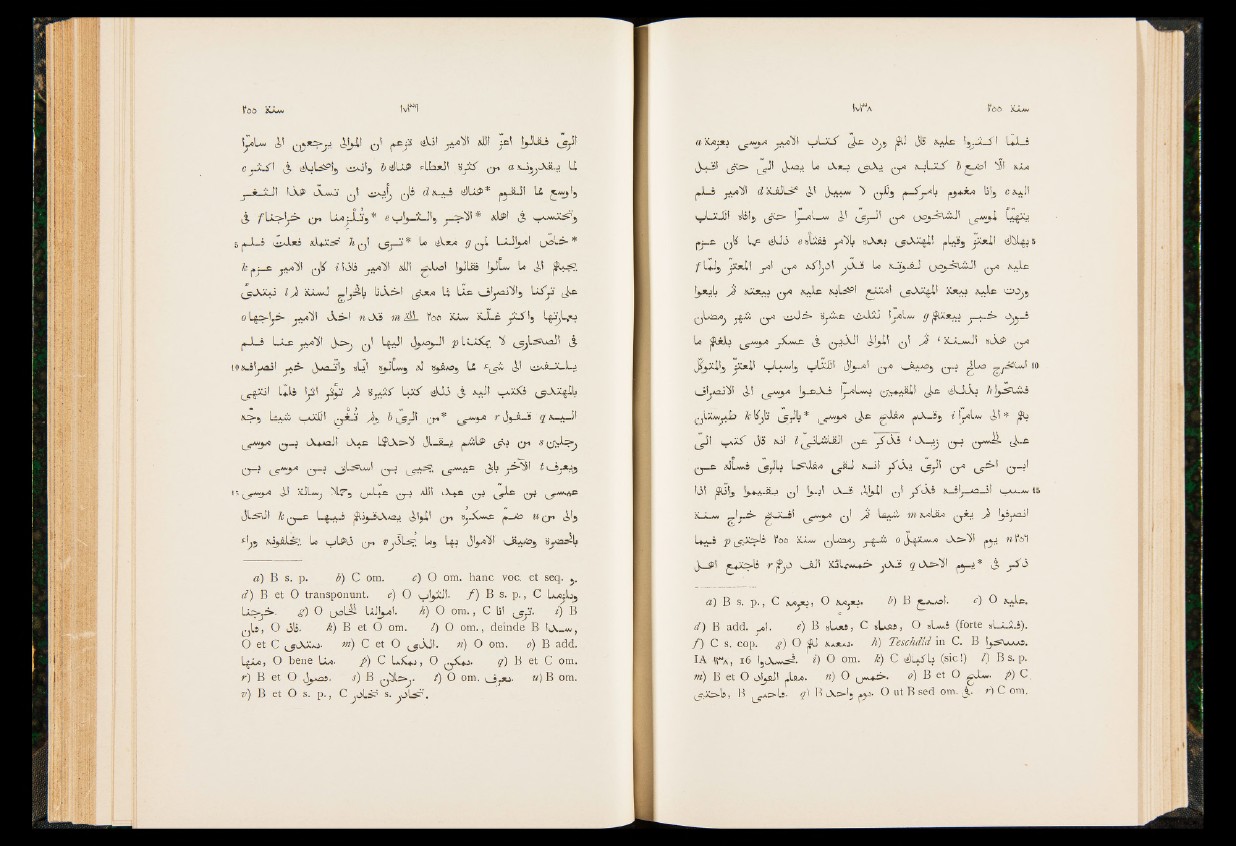 ١٧٣٨ سنة ٢٥٥
فلما اكثروا عليه قال لهم ورد علىّ كتاب الامير موسى بعزمة a
منه الّا اضع b كتابه من يدى بعد ما يصل الىّ حتى اقبل
اليه c وانا مغموم بامركم ولكن لا سبيل الى مخالفة d الامير فلم
يتهيّأ لموسى الشخوص من الرى الى سامرّا حتى وافاه الكتاب
بهلاك المعتز وقيام المهتدى بعده بالامر ففثأه e ذلك عما كان عزم 5
عليه من الشخوص لفوته ما قدّر ادراكه من امر المعتز ولمّا f
وردت عليه بيعة المهتدى امتنع اصحابه عليه من بيعته ثم بايعوا
فورد خبر بيعتهم g سامرّا لثلث عشرة خلت من شهر رمضان
من هذه السنة ، ثم ان الموالى الذين فى عسكر موسى بلغهم ما
استخرج صالح بن وصيف من اموال الكتّاب واسباب المعتز والمتوكّل 10
فشحّوا h بذلك على المقيمين بسامرّا فدعوا موسى الى الانصراف
بهم *الى سامرّا i وقدم مفلح على موسى *بالرىّ تاركًا k طبرستان
على الحسن بن زيد ، فذكر عن القاشانىّ l انه قال كتب الىّ
ابن اخى من الرى يذكر انه لقى مفلحا بالرىّ فسأله عن
سبب انصرافه فذكر ان الموالى قد ابوا ان يقيموا وانهم اذا 15
انصرفوا لم يغن مقامه m شيئا ثم ان موسى افتتح خراج سنة
٢٥٦ n يوم الاحد مستهل o شهر رمضان سنة ٢٥٥ فاجتبى p فيها
ذكر فى *يوم الاحد q قدر خمسمائة الف درهم r فاجتمع اهل
a) B s. p., C
b) B
c) O عليه.
d) B add. امر.
f) C s. cop. g) O
h) Teschdîd in C. B
i) O om.
(sic!) l) B s. p.
n) O خمس.
O ut B sed om. فى. r) C om.
سنة ٢٥٥
الرىّ فقالوا اعزّ الله الامير انك تزعم ان الموالى يرجعون الى سامرّا
لما يقدّرونه a من كثرة العطاء هناك b وانت واصحابك فى اكثر c
واوسع مما القوم *هناك فيه d فان رأيت ان تسدّ هذا الثغر
وتحتسب فى اهله *الاجر والثواب e *وتُلْزمنا من خراجنا f فى
*خاصّ اموالنا لمن g معك ما *ترى ان h نحتمله فعلت فلم 5
يجبهم الى ما سألوا فقالوا اصلح الله الامير فاذا i كان الامير عزم k
على تركنا والانصراف عنّا فما معنى اخذنا بالخراج لسنة لم l نبتدئ
بعمارتها واكثر غلّة سنة ٢٥٥ التى m قد n اخذ الامير خراجها o
فى الصحارى لا يمكننا p الوصول اليها ان رحل الامير عنا فلم
يلتفت الى شىء مما وصفوه له وسألوه ايّاه واتّصل خبر انصرافه 10
بالمهتدى فكتب اليه فى ذلك كتبا كثيرة لم تؤثّر اثرا فلما انتهى
اليه q قفول r موسى *من الرىّ b ولم تُغْنِ الكتب شيئا وجّه
رجلين s من بنى هاشم يقال لاحدهما عبد الصمد بن موسى
ويعرف t الآخر بابى عيسى يحيى بن اسحاق بن موسى بن
عيسى بن علىّ بن عبد الله بن عبّاس وحمّلا رسالة الى موسى 15
والى من u ضمّ عسكره من الموالى يصدقونهم فيها عن k الحال
بالحضرة وضيق الاموال بها وما يُحاذر v من ذهاب ما يخلفونه وراء
a) B s. p. b) C om. c) O om. hanc voc. et seq. و.
d) B et O transponunt. e) O الثواب. f) B s. p., C
h) O om., C انا ترى. i) B
k) B et O om. l) O om., deinde B
m) C et O الذى. n) O om. o) B add.
O يمكن. q) B et C om.
r) B et O فصول. s) B رجلان. t) O om. يعرف. u) B om.
v) B et O s. p., C